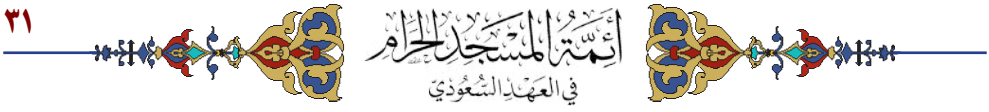 ٣١
أَئِمَّةُ المَسْجِدِ الحَرَامِ
فِي العَهْدِ السُّعُودِيِّ